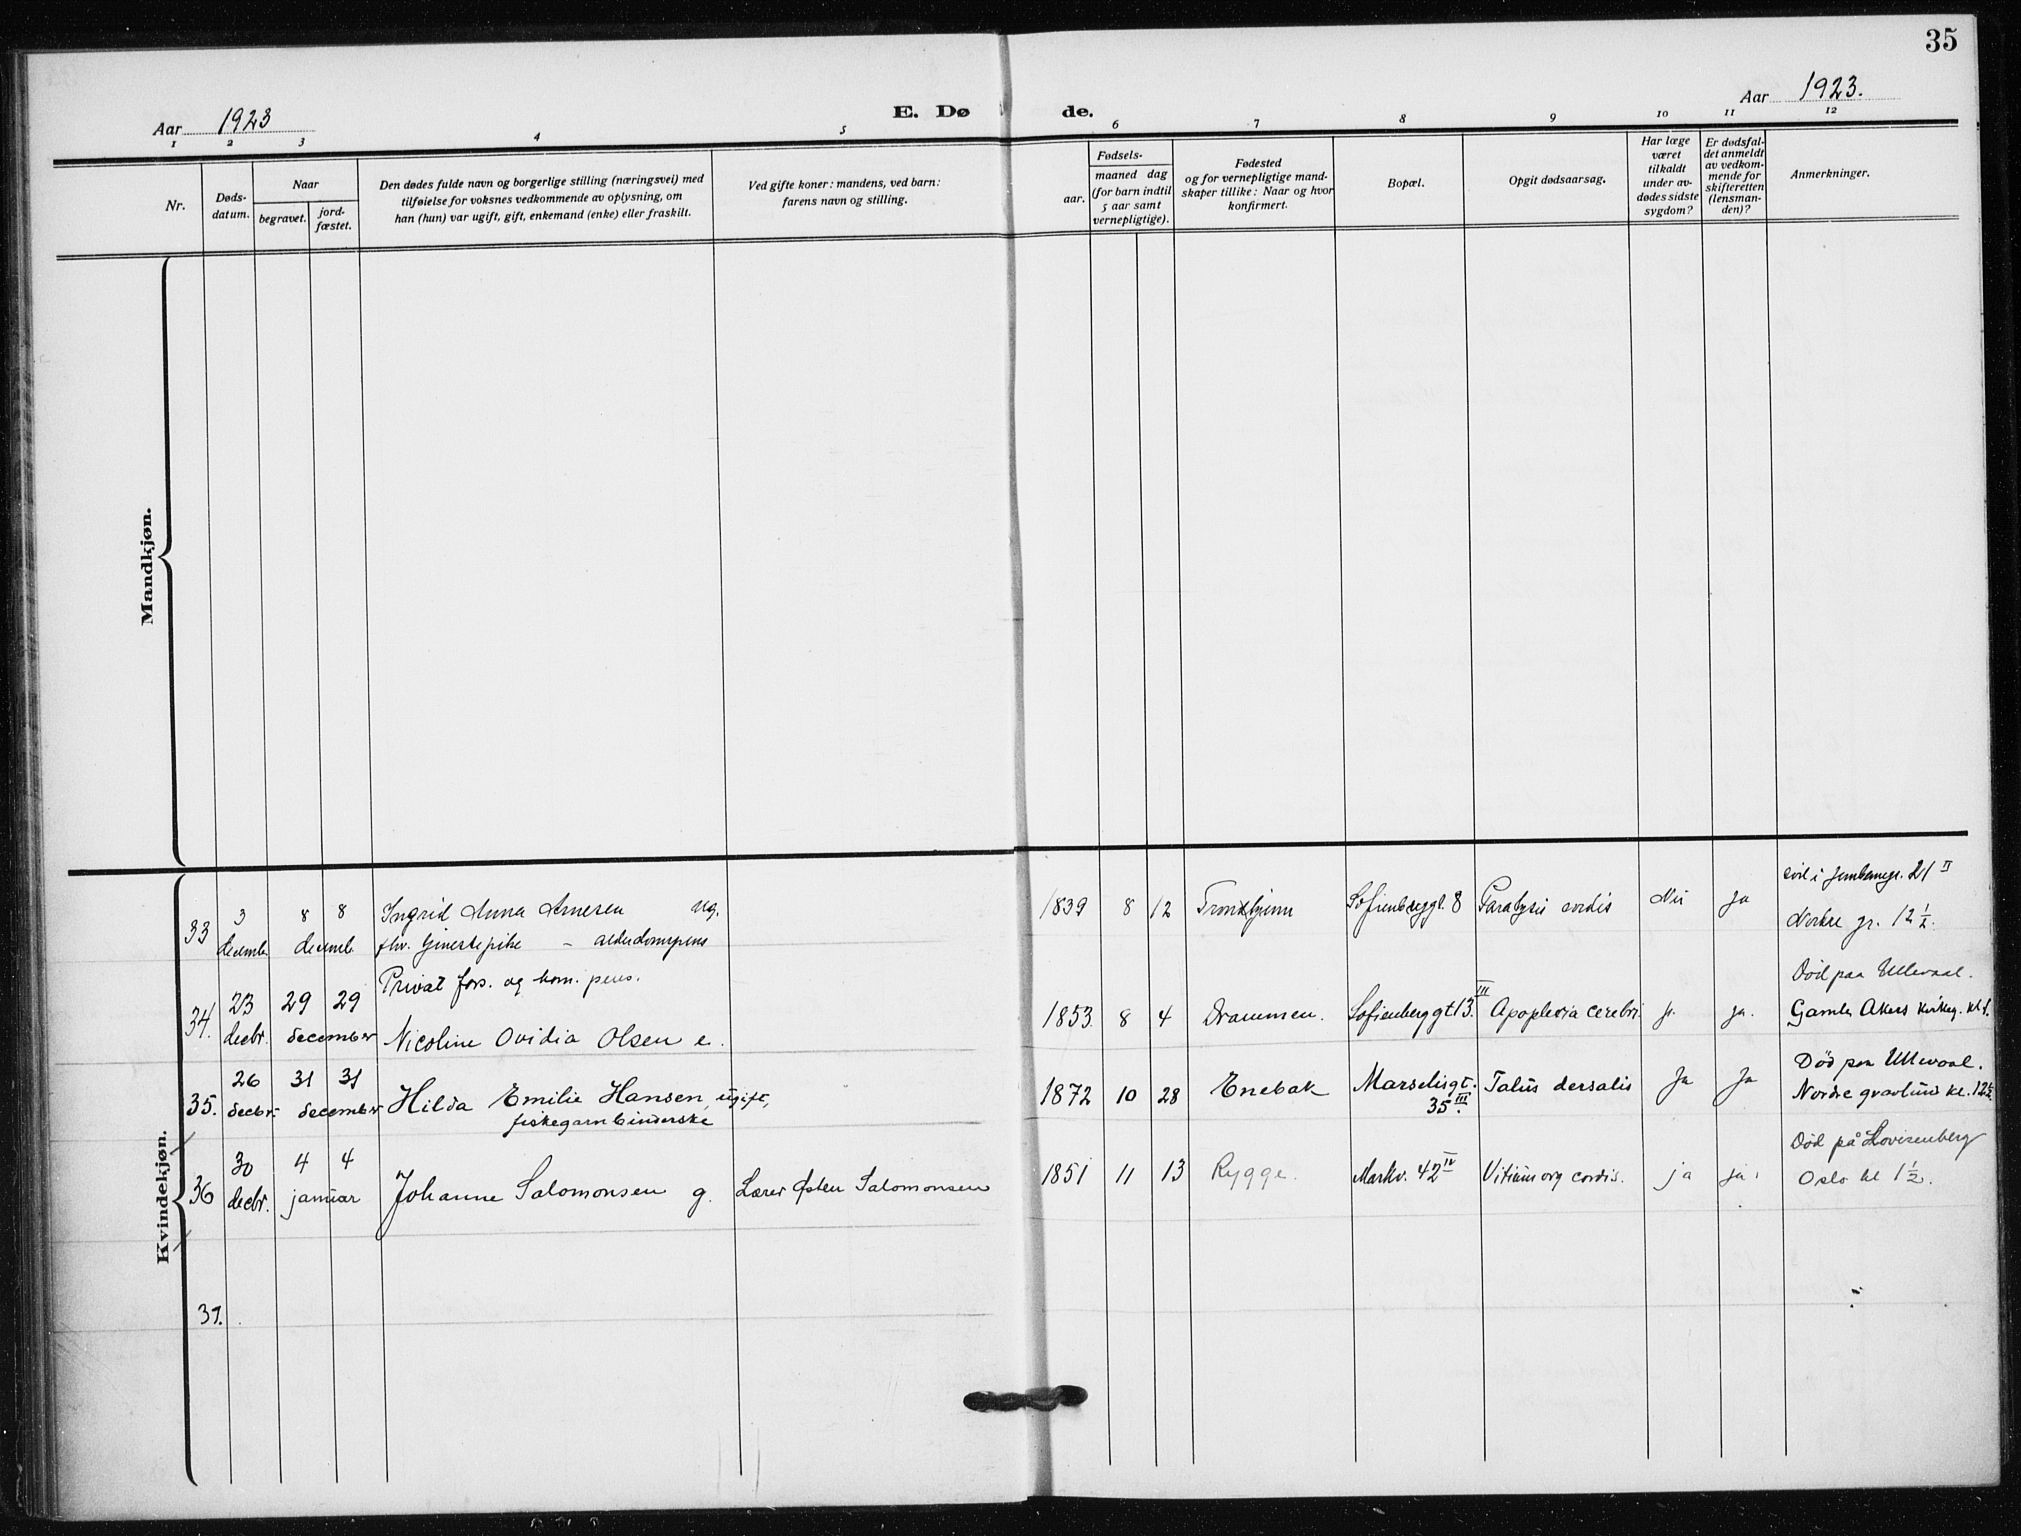 35
Aar 1923
E. Dø de.
Aar 1923.
1 2 3 4 5 6 7 8 9 10 11 12
Nr.
Døds-
datum.
Naar
begravet.
jord-
fæstet.
Den dødes fulde navn og borgerlige stilling (næringsvei) med
tilføielse for voksnes vedkommende av oplysning, om
han (hun) var ugift, gift, enkemand (enke) eller fraskilt.
Ved gifte koner: mandens, ved barn:
farens navn og stilling.
aar.
Fødsels-
maaned dag
(for barn indtil
5 aar samt
vernepligtige).
Fødested
og for vernepligtige mand-
skaper tillike: Naar og hvor
konfirmert.
Bopæl.
Opgit dødsaarsag.
Har læge
været
tilkaldt
under av-
dødes sidste
sygdom?
Er dødsfal-
det anmeldt
av vedkom-
mende for
skifteretten
(lensman-
den)?
Anmerkninger.
Mandkjøn.
Kvindekjøn.
33
3
decemb.
8 8
decemb.
Ingrid Anna Arnesen ug.
fhv. tjenestepike – alderdomspens
1839 8 12
Trondhjem
Sofienberggt. 8
Paralysis cordis
Nei
Ja
21 II
Nordre gr. 12 1/2.
34.
23
decbr.
29 29
december
Privat fors. og kom. pens.
Nicoline Ovidia Olsen e.
1853. 8 4
Drammen.
Sofienberggt 13 III
Apoplexia cerebri
j.
ja.
Død paa Ullevaal.
Gamle Akers kirkeg.
35.
26
decbr.
31 31
december
Hilda Emilie Hansen, ugift,
fiskegarnbinderske
1872 10 28
Enebak
Marselisgt.
35 III.
Tabes dorsalis
Ja
Ja
Død paa Ullevaal.
Nordre gravlund kl. 12 1/2
36
30
decbr.
4 4
januar
Johanne Salomonsen g.
Lærer Østen Salomonsen
1851 11 13
Rygge.
Markv. 42 IV
Vitium org cordis.
ja
ja.
Død på Lovisenberg
Oslo kl 1 1/2.
37.